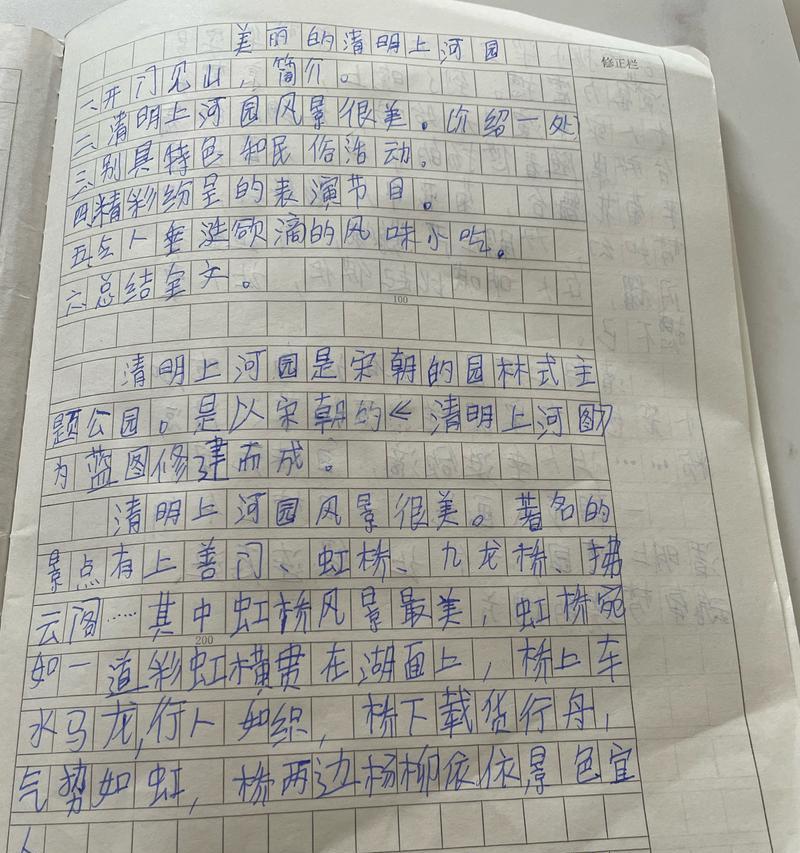 美丽的清明上河园
修正栏
一、开门见山,简介。
二、清明上河园风景很美。介绍一处
三、别具特色和民俗活动。
四、精彩纷呈的表演节目。
五、令人垂涎欲滴的风味小吃。
六、总结全文。
100
清明上河园是宋朝的园林式主
题公园。是以宋朝的《清明上河图》
为蓝图修建而成。
清明上河园风景很美。著名的
景点有上善门、虹桥、九龙桥、拂
云阁……其中虹桥风景最美,虹桥宛
200
如一道彩虹横贯在湖面上,桥上车
水马龙,行人如织,桥下载货行舟,
气势如虹,桥两边杨柳依依景色宜
人